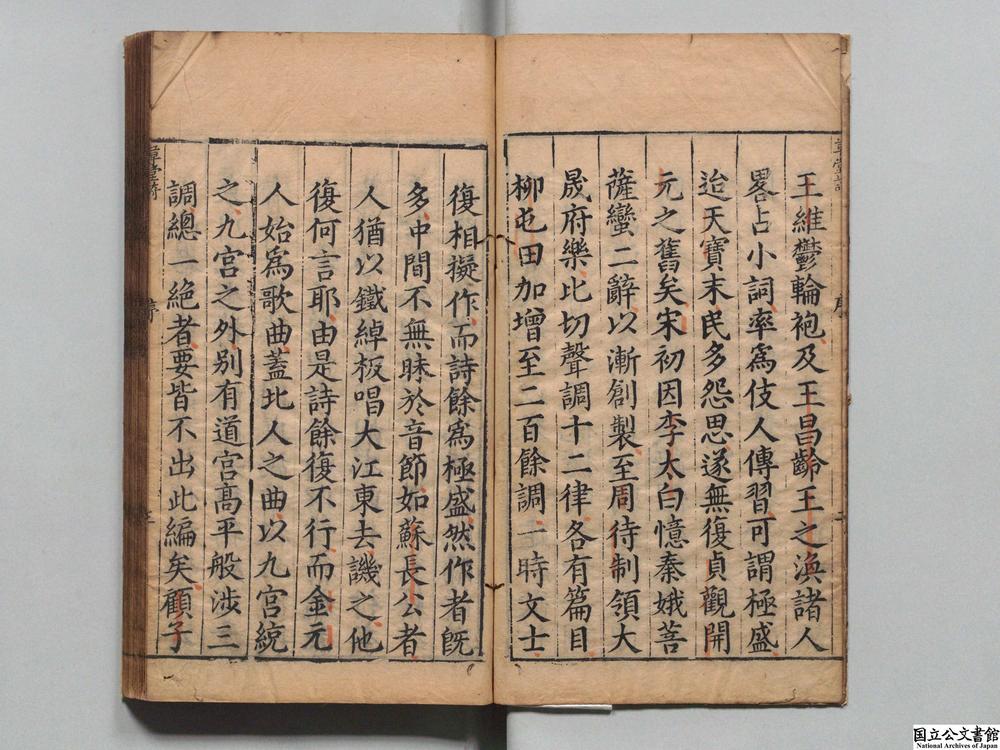 王維鬱輪袍及王昌齡王之渙諸人
畧占小詞率爲伎人傳習可謂極盛
迨天寶末民多怨思遂無復貞觀開
元之舊矣宋初因李太白憶秦娥菩
薩蠻二辭以漸創製至周待制領大
晟府樂比切聲調十二律各有篇目
柳屯田加增至二百餘調一時文士
復相擬作而詩餘爲極盛然作者旣
多中間不無昧於音節如蘇長公者
人猶以鐵綽板唱大江東去譏之他
復何言耶由是詩餘復不行而金元
人始爲歌曲蓋北人之曲以九宮統
之九宮之外別有道宮高平般涉三
調總一絶者要皆不出此編矣顧子
草堂詩
国立公文書館
National Archives of Japan